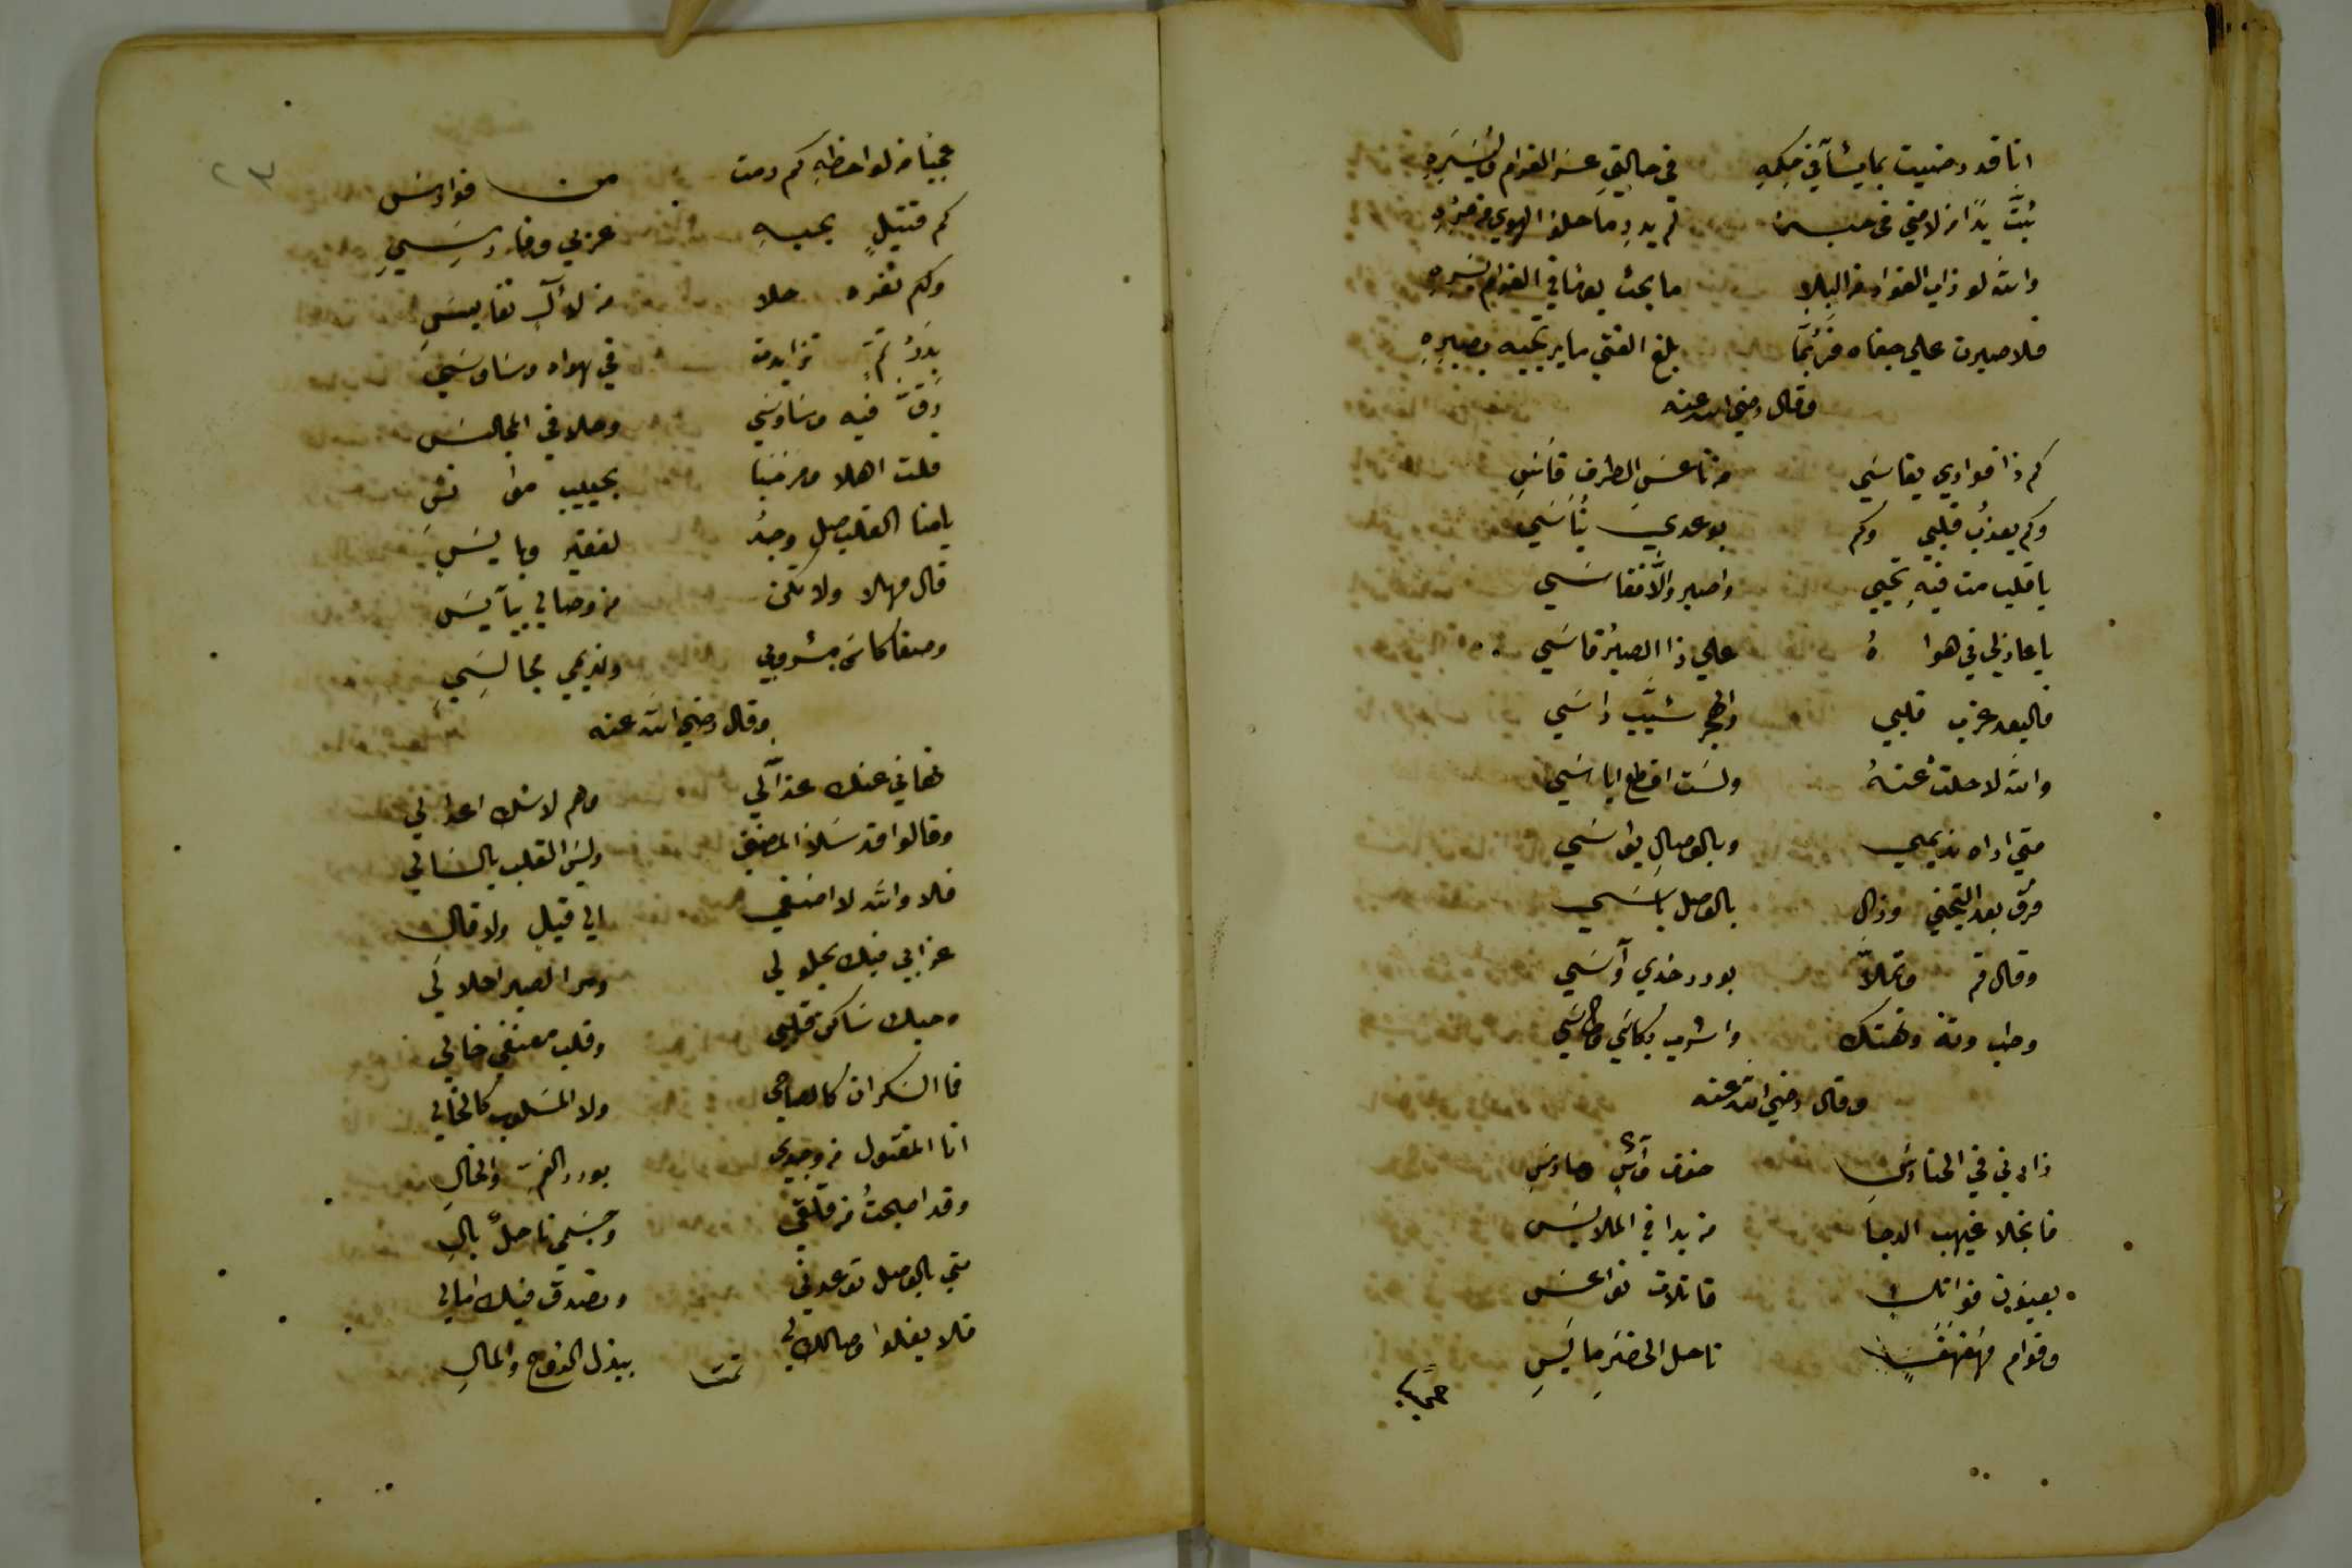 انا قد رضيت بما يشآ في حكمه في حالتي عسر الغرام ويسره
تبت يدا من لامني في حبه لم يدر ما حلو الهوي من مره
والله لو ذاب الفواد من البلا ما بحت يوما في الغرام بسره
فلاصبرت علي جفاه فربما بلغ الفتي ما يرتجيه بصبره
وقال رضي الله عنه
كم ذا فوادي يقاسي من ناعس الطرف قاس
وكم يعذب قلبي وكم بوعدي يناسي
يا قلب مت فيه تحيي واصبر والا فقاسي
يا عاذلي في هواه علي ذا الصبر قاسي
فالبعد عذب قلبي والهجر شيب راسي
والله لا حلت عنه ولست اقطع اياسي
متي اراه نديمي وبالوصال يواسي
فرق بعد التجني وزال بالوصل باسي
وقال قم وتملا بورد خدي وآسي
وطب وته وتهتك واشرب بكاسي وطاسي
وقال رضي الله عنه
زارني في الحنادس خوف واش وحارس
فانجلا غيهب الدجا مذ بدا في الملابس
بعيون فواتك قاتلات نواعس
وقوام مهفهف ناحل الخصر مايس
عجبا
عجبا من لواحظه كم رمت من فوارس
كم قتيل بحبه عربي وفارسي
وكم ثغره حلا من لآل نفايس
بدر تم تزايدت في هواه وساوسي
رق فيه وساوسي وحلا في المجالس
قلت اهلا ومرحبا بحبيب موانس
يا منا القلب صل وجد لفقير وبايس
قال مهلا ولا تكن من وصالي بيآيس
وصفا كاس مشروبي ونديمي مجالسي
وقال رضي الله عنه
نهاني عنك عذالي وهم لا شك اعدا لي
وقالوا قد سلا المضني وليس القلب بالسالي
فلا والله لا اصغي الي قيل ولا قال
عذابي فيك يحلو لي ومر الصبر احلا لي
وحبك ساكن قلبي وقلب معنفي خالي
فما السكران كالصاحي ولا المسلوب كالخالي
انا المقتول من وجدي بورد الخد والخال
وقد اصبحت من قلقي وجسمي ناحل بال
متي بالوصل توعدني وتصدق فيك امالي
فلا يغلوا وصالك لي ببذل الروح والمال
تمت